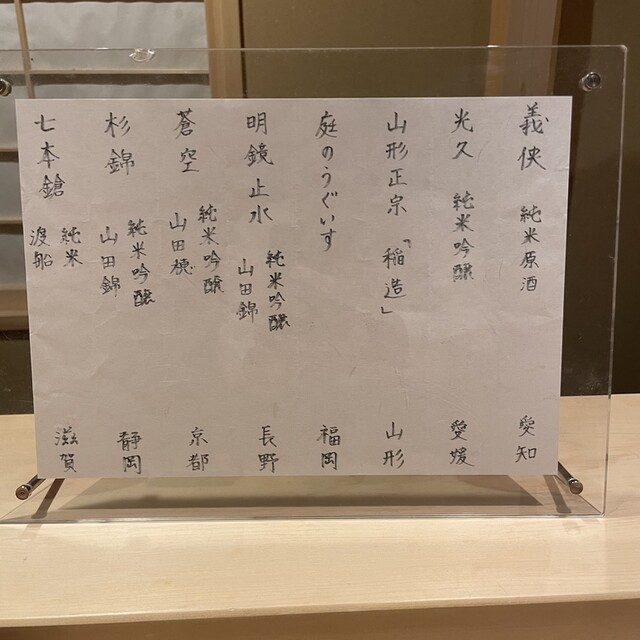 義侠 純米原酒 愛知
光久 純米吟醸 愛媛
山形正宗「稲造」 山形
庭のうぐいす 福岡
明鏡止水 純米吟醸 山田錦 長野
蒼空 純米吟醸 山田穂 京都
杉錦 純米吟醸 山田錦 静岡
七本鎗 純米 渡船 滋賀